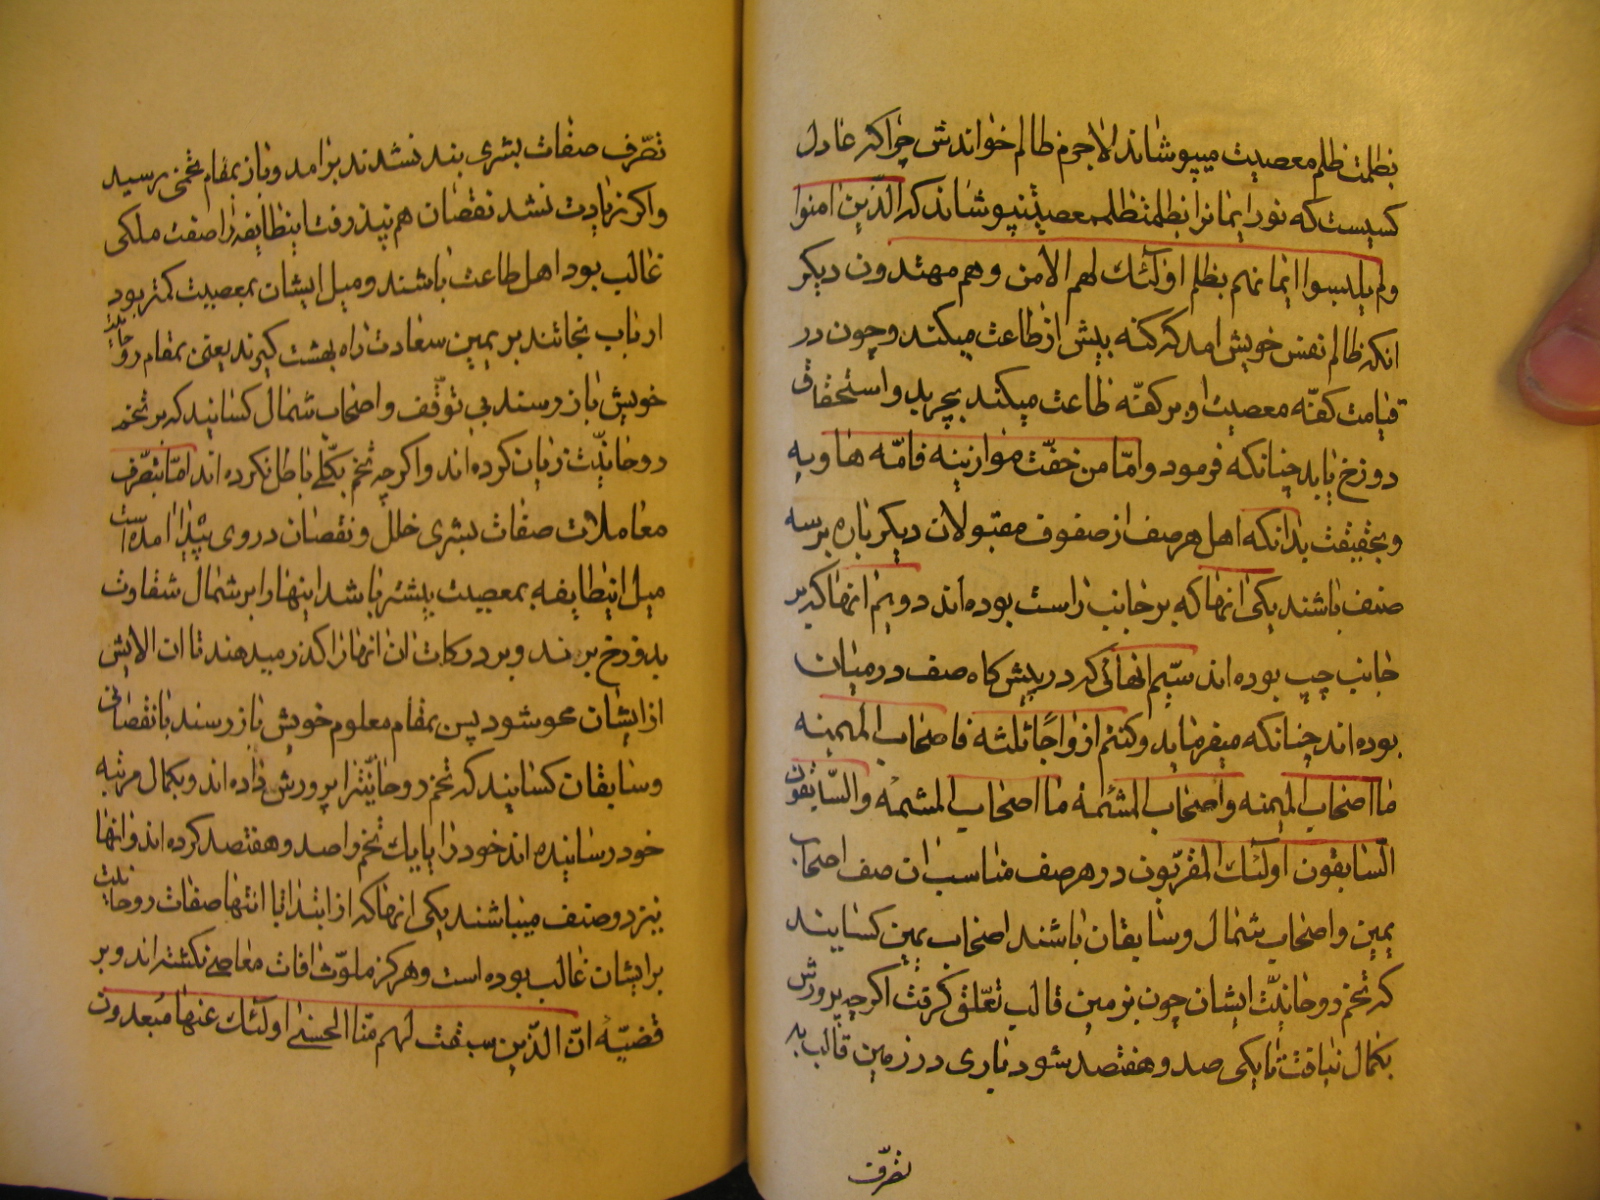 بظلمت ظلم معصیت میپوشاند لاجرم ظالم خواندش چرا که عادل
کسیست که نور ایمانرا بظلمت ظلم معصیت نپوشاند که الّذین امنوا
ولم یلبسوا ایمانهم بظلم اولئك لهم الامن وهم مهتدون دیکر
انکه ظالم نفس خویش امد که کنه بیش از طاعت میکند و چون در
قیامت کفّه معصیت او بر کفّه طاعت میکند بچربد و استحقاق
دوزخ یابد چنانکه فرمود وامّا من خفّت موازینه فامّه هاویه
و بحقیقت بدانکه اهل هر صف از صفوف مقبولان دیکر باره بر سه
صنف باشند یکی انها که بر جانب راست بوده اند دویم انها که بر
جانب چپ بوده اند سیّم انهائی که در پیش کاه صف در میان
بوده اند چنانکه میفرماید وکنتم ازواجًا ثلثه فاصحاب المیمنه
ما اصحاب المیمنه واصحاب المشئمة ما اصحاب المشئمه والسّابقون
السّابقون اولئك المقرّبون در هر صف مناسب ان صف اصحاب
یمین و اصحاب شمال و سابقان باشند اصحاب یمین کسانیند
که تخم روحانیّت ایشان چون بزمین قالب تعلّق کرفت اکر چه پرورش
بکمال نیافت تا یکی صد و هفتصد شود باری در زمین قالب به
تصرّف
تصرّف صفات بشری بند نشدند برامد و باز بمقام تخمی رسید
و اکر زیادت نشد نقصان هم نپذیرفت اینطایفه را صفت ملکی
غالب بود اهل طاعت باشند و میل ایشان بمعصیت کمتر بود
ارباب نجاتند بر یمین سعادت راه بهشت کیرند یعنی بمقام روحانیت
خویش باز رسند بی توقّف و اصحاب شمال کسانیند که بر تخم
روحانیّت زیان کرده اند و اکر چه تخم بکلّی باطل نکرده اند امّا بتصرّف
معاملات صفات بشری خلل و نقصان در وی پدید امده است
میل اینطایفه بمعصیت بیشتر باشد اینها را بر شمال شقاوت
بدوزخ برند و بر درکات ان انها را کذر میدهند تا ان الایش
از ایشان محو شود پس بمقام معلوم خویش باز رسند با نقصانی
و سابقان کسانیند که تخم روحانیّت را پرورش داده اند و بکمال مرتبه
خود رسانیده اند خود را یا یك تخم را صد و هفتصد کرده اند و انها
نیز دو صنف میباشند یکی انها که از ابتدا تا انتها صفات روحانیت
بر ایشان غالب بوده است و هرکز ملوّث افات معاصی نکشته اند و بر
قضیّه انّ الّذین سبقت لهم منّا الحسنی اولئك عنها مبعدون